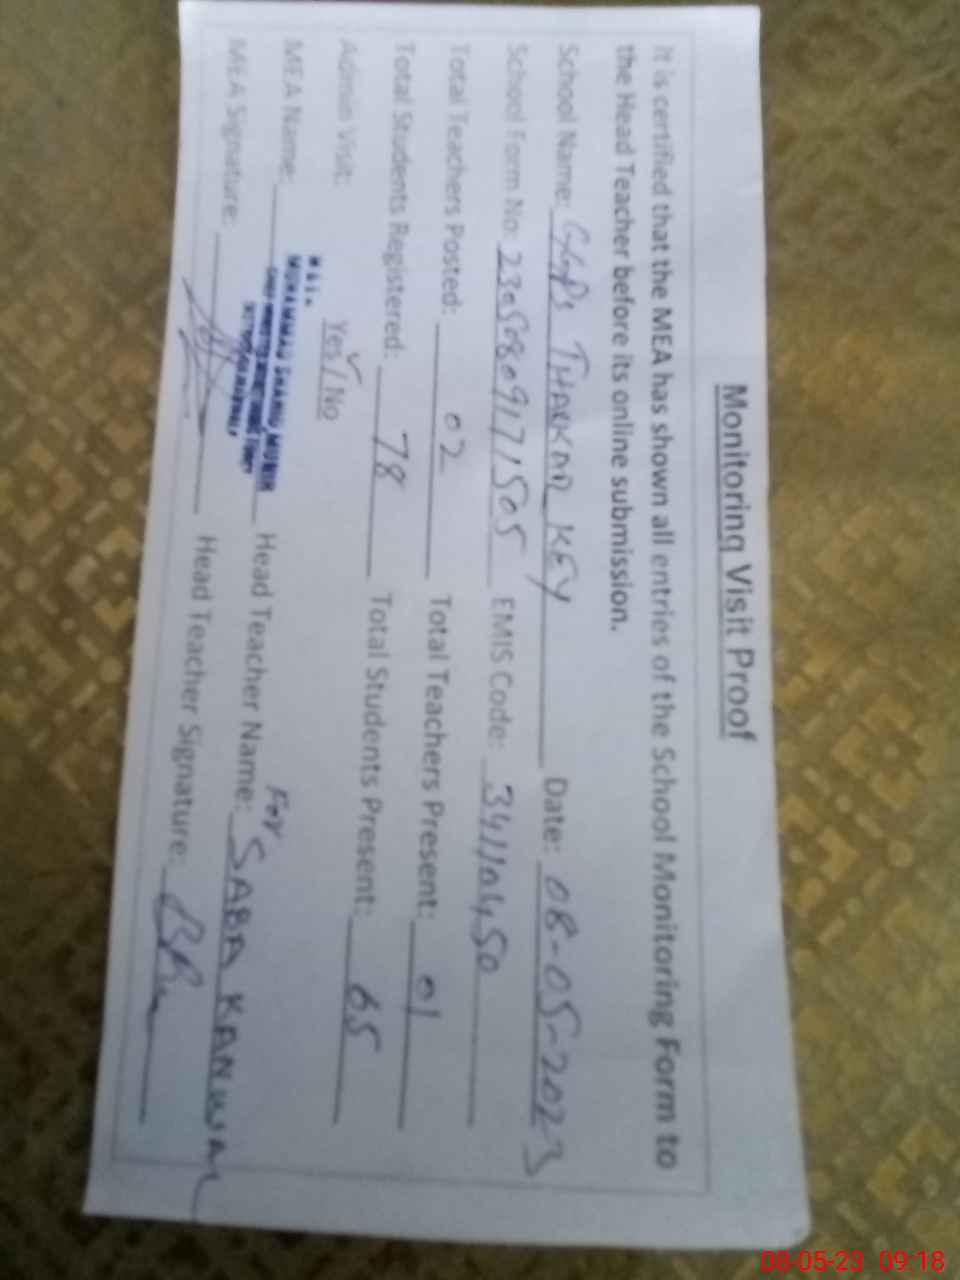 Monitoring Visit Proof
It is certified that the MEA has shown all entries of the School Monitoring Form to
the Head Teacher before its online submission.
School Name: GGPS THARKAR KEY Date: 08-05-2023
School Form No: 23050809171505 EMIS Code: 34110450
Total Teachers Posted: 02 Total Teachers Present: 01
Total Students Registered: 78 Total Students Present: 65
Admin Visit: Yes / No
MEA Name: MUHAMMAD MUNIR Head Teacher Name: For SABA KANWAL
MEA Signature: Head Teacher Signature:
08-05-23 09:18